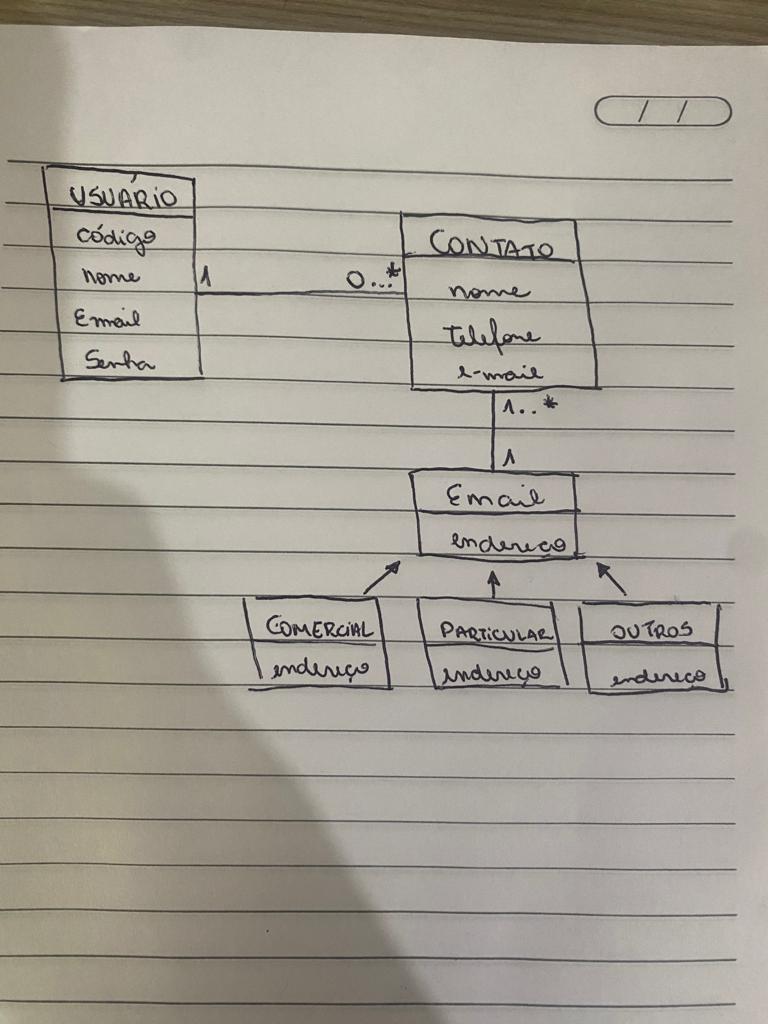 / /
USUÁRIO
Código
nome
Email
Senha
1
0...*
CONTATO
nome
Telefone
e-mail
1..*
1
Email
endereço
COMERCIAL
endereço
PARTICULAR
endereço
OUTROS
endereço